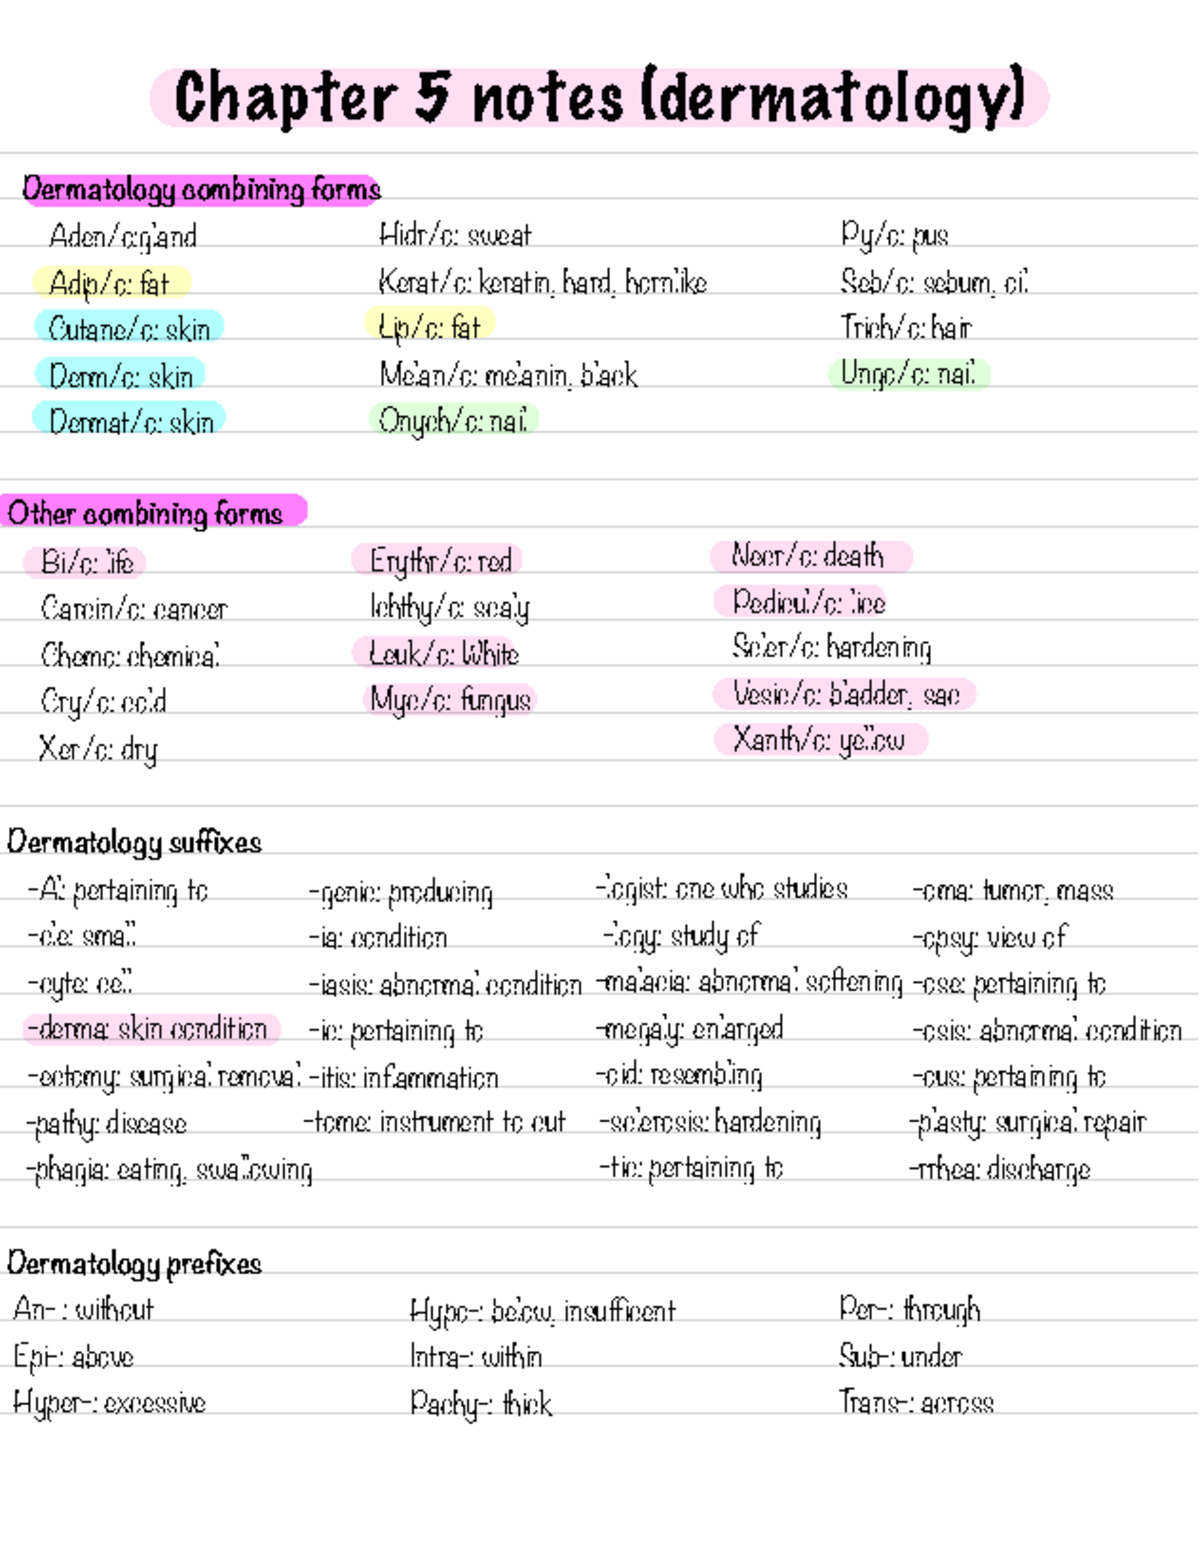 Chapter 5 notes (dermatology)
Dermatology combining forms
Aden/o: gland
Hidr/o: sweat
Py/o: pus
Adip/o: fat
Kerat/o: keratin, hard, hornlike
Seb/o: sebum, oil
Cutane/o: skin
Lip/o: fat
Trich/o: hair
Derm/o: skin
Melan/o: melanin, black
Ungo/o: nail
Dermat/o: skin
Onych/o: nail
Other combining forms
Bi/o: life
Erythr/o: red
Necr/o: death
Carcin/o: cancer
Ichthy/o: scaly
Pedicul/o: lice
Chemo: chemical
Leuk/o: White
Scler/o: hardening
Cry/o: cold
Myc/o: fungus
Vesic/o: bladder, sac
Xer/o: dry
Xanth/o: yellow
Dermatology suffixes
-Al: pertaining to
-genic: producing
-logist: one who studies
-oma: tumor, mass
-cle: small
-ia: condition
-logy: study of
-opsy: view of
-cyte: cell
-iasis: abnormal condition
-malacia: abnormal softening
-ose: pertaining to
-derma: skin condition
-ic: pertaining to
-megaly: enlarged
-osis: abnormal condition
-ectomy: surgical removal
-itis: inflammation
-oid: resembling
-ous: pertaining to
-pathy: disease
-tome: instrument to cut
-sclerosis: hardening
-plasty: surgical repair
-phagia: eating, swallowing
-tic: pertaining to
-rrhea: discharge
Dermatology prefixes
An- : without
Hypo-: below, insufficent
Per-: through
Epi-: above
Intra-: within
Sub-: under
Hyper-: excessive
Pachy-: thick
Trans-: across